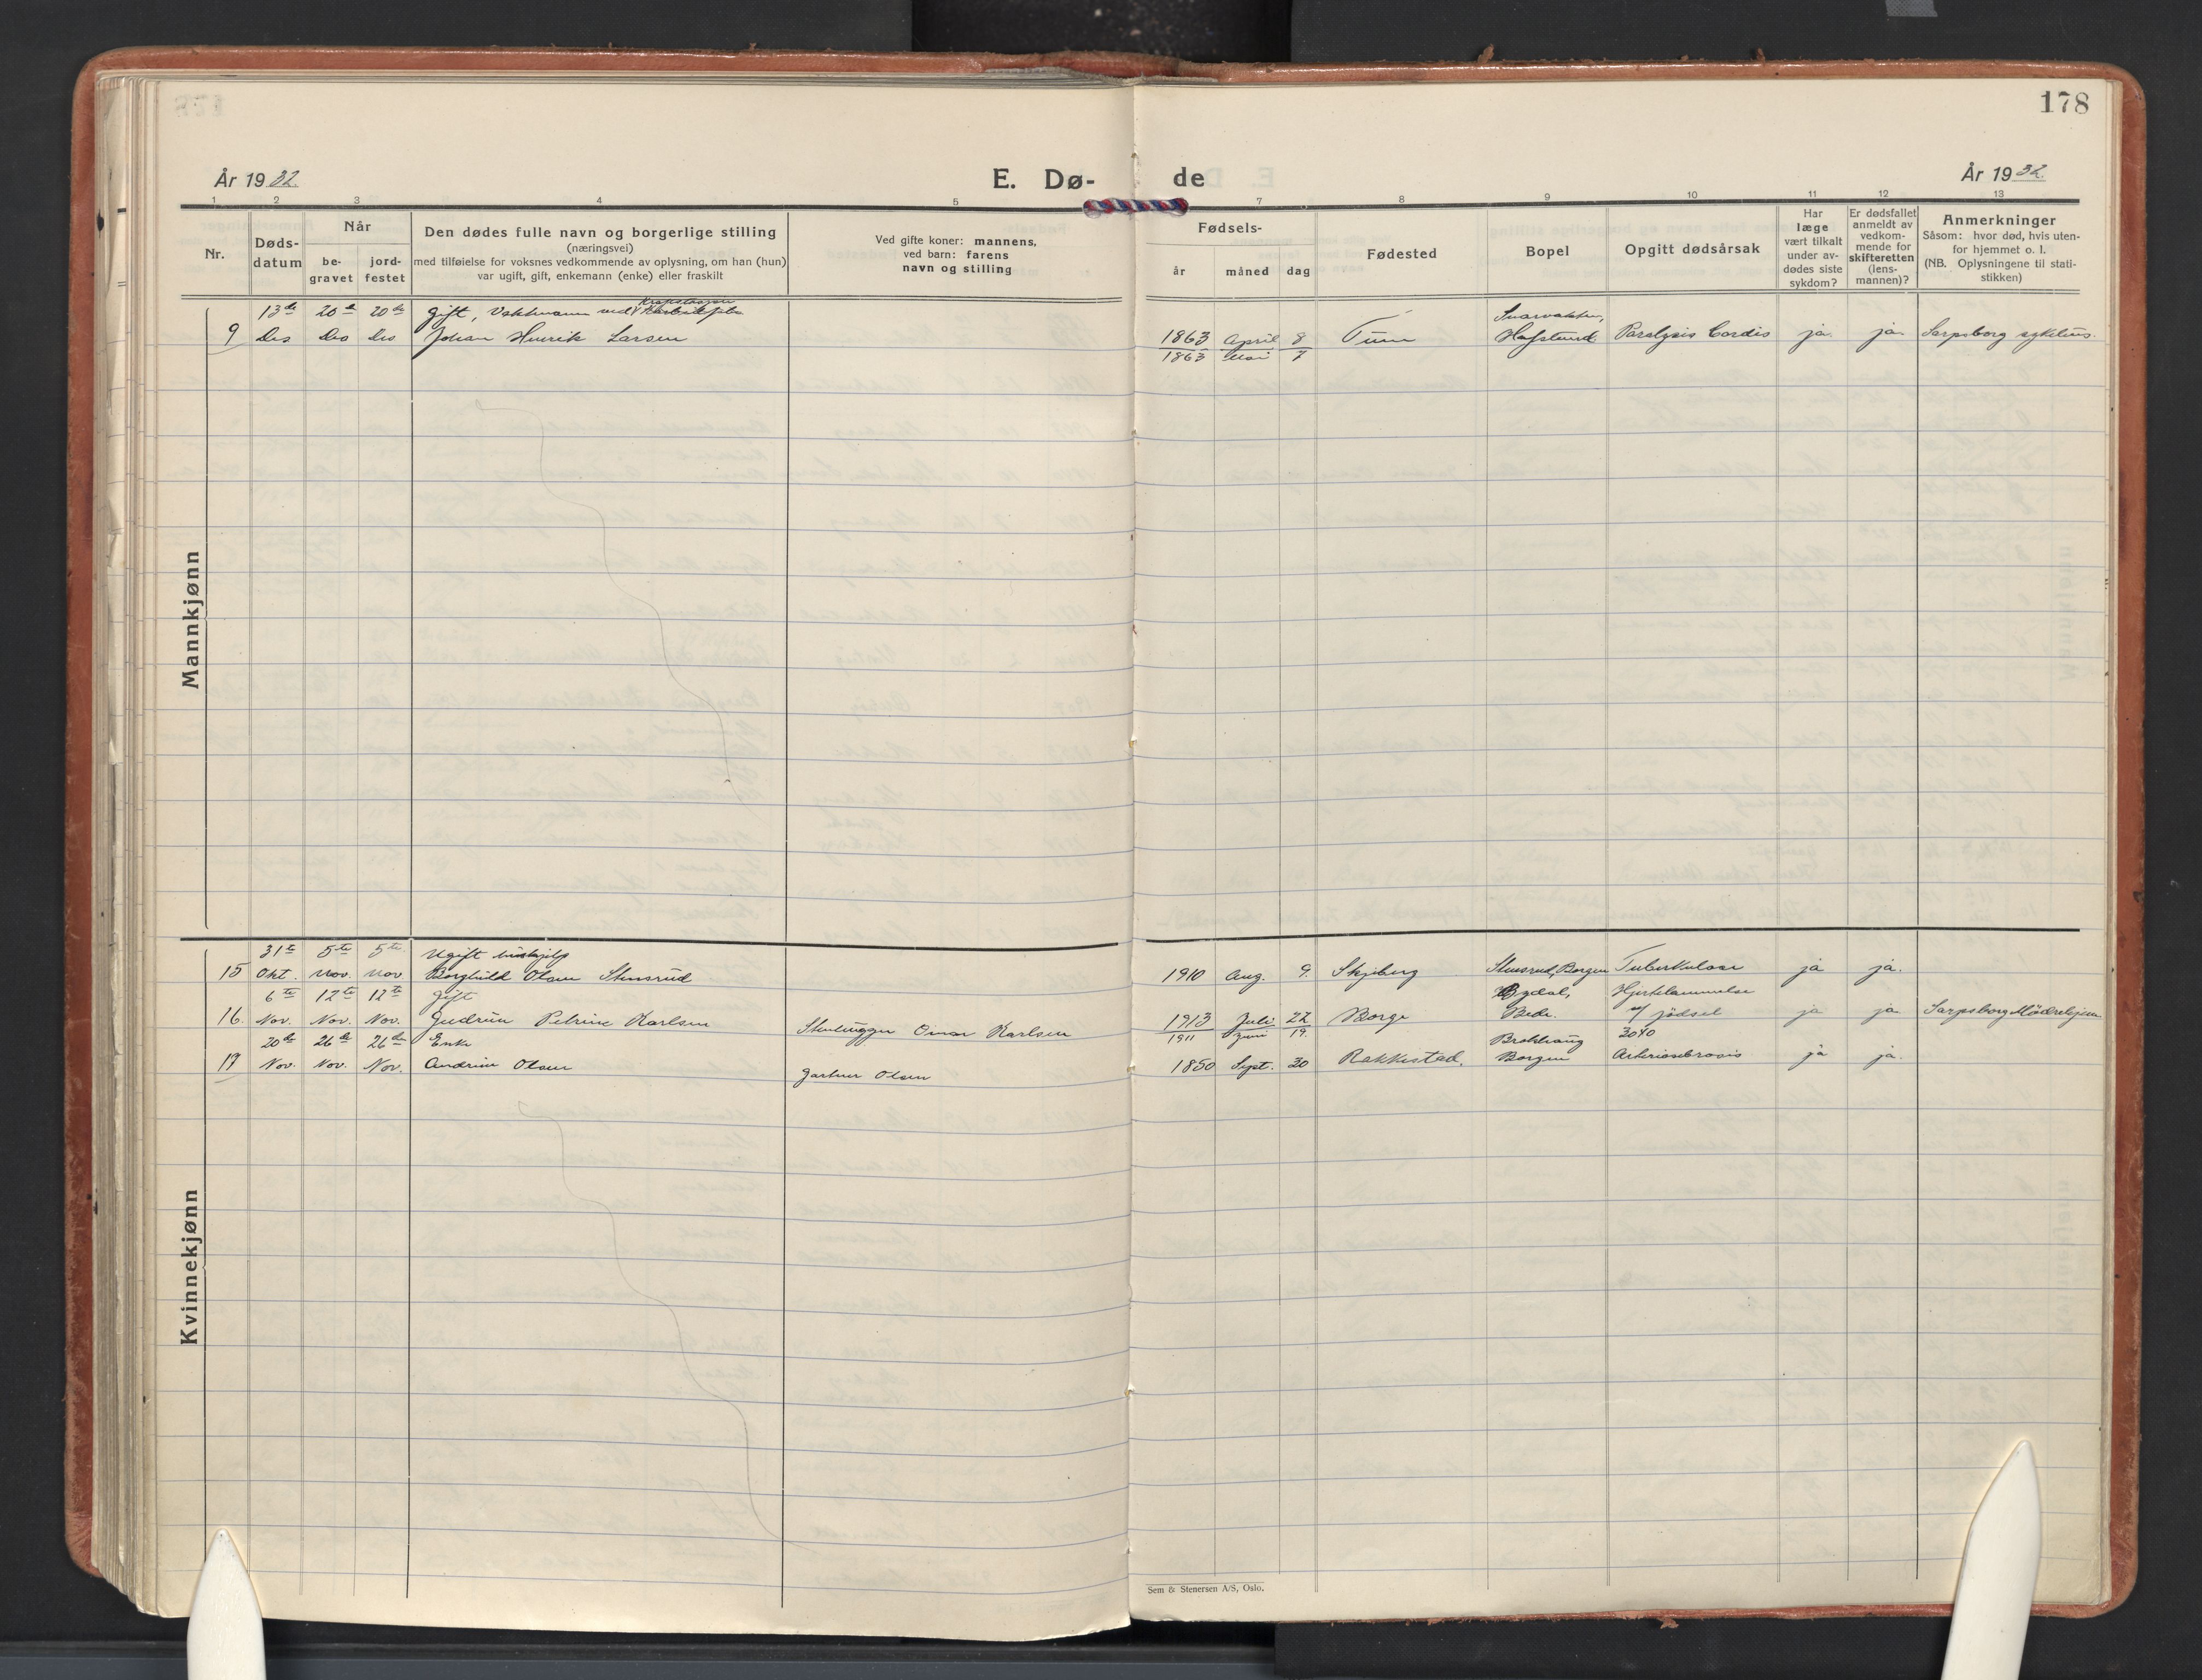 178
År 1932.
E. Dø-
de
År 1932.
1 2 3 4 5 7 8 9 10 11 12 13
Nr.
Døds-
datum
Når
be-
gravet
jord-
festet
Den dødes fulle navn og borgerlige stilling
(næringsvei)
med tilføielse for voksnes vedkommende av oplysning, om han (hun)
var ugift, gift, enkemann (enke) eller fraskilt
Ved gifte koner: mannens,
ved barn: farens
navn og stilling
Fødsels-
år
måned
dag
Fødested
Bopel
Opgitt dødsårsak
Har
læge
vært tilkalt
under av-
dødes siste
sykdom?
Er dødsfallet
anmeldt av
vedkom-
mende for
skifteretten
(lens-
mannen)?
Anmerkninger
Såsom: hvor død, hvis uten-
for hjemmet o. l.
(NB. Oplysningene til stati-
stikken)
Mannkjønn
13de 20de 20de Gift, Vaktmann ved
9 Des Des Des Johan Henrik Larsen 1863 April 8 Tune Hafslund Paralysis Cordis ja. ja Sarpsborg sykehus.
1863 Mai 7
Kvinnekjønn
31te 5te 5te Ugift hushjelp
15 Okt. Nov. Nov Borghild Olsen Stensrud 1910 Aug. 9. Skjeberg Stensrud, Borgen Tuberkulose ja ja.
6te 12te 12te Gift Bydal, Hjertelammelse
16. Nov. Nov. Nov. Gudrun Petrine Karlsen Stenhugger Omar Karlsen 1913 Juli 22 Borge Bede. e/ fødsel ja ja Sarpsborg Mødrehjem
1911 Juni 19.
20de 26de 26de Enke 3040
17 Nov. Nov. Nov. Andrine Olsen Gartner Olsen 1850 Sept. 30 Rakkestad. Borgen Arteriosclrosis ja ja.
Sem & Stenersen A/S, Oslo.